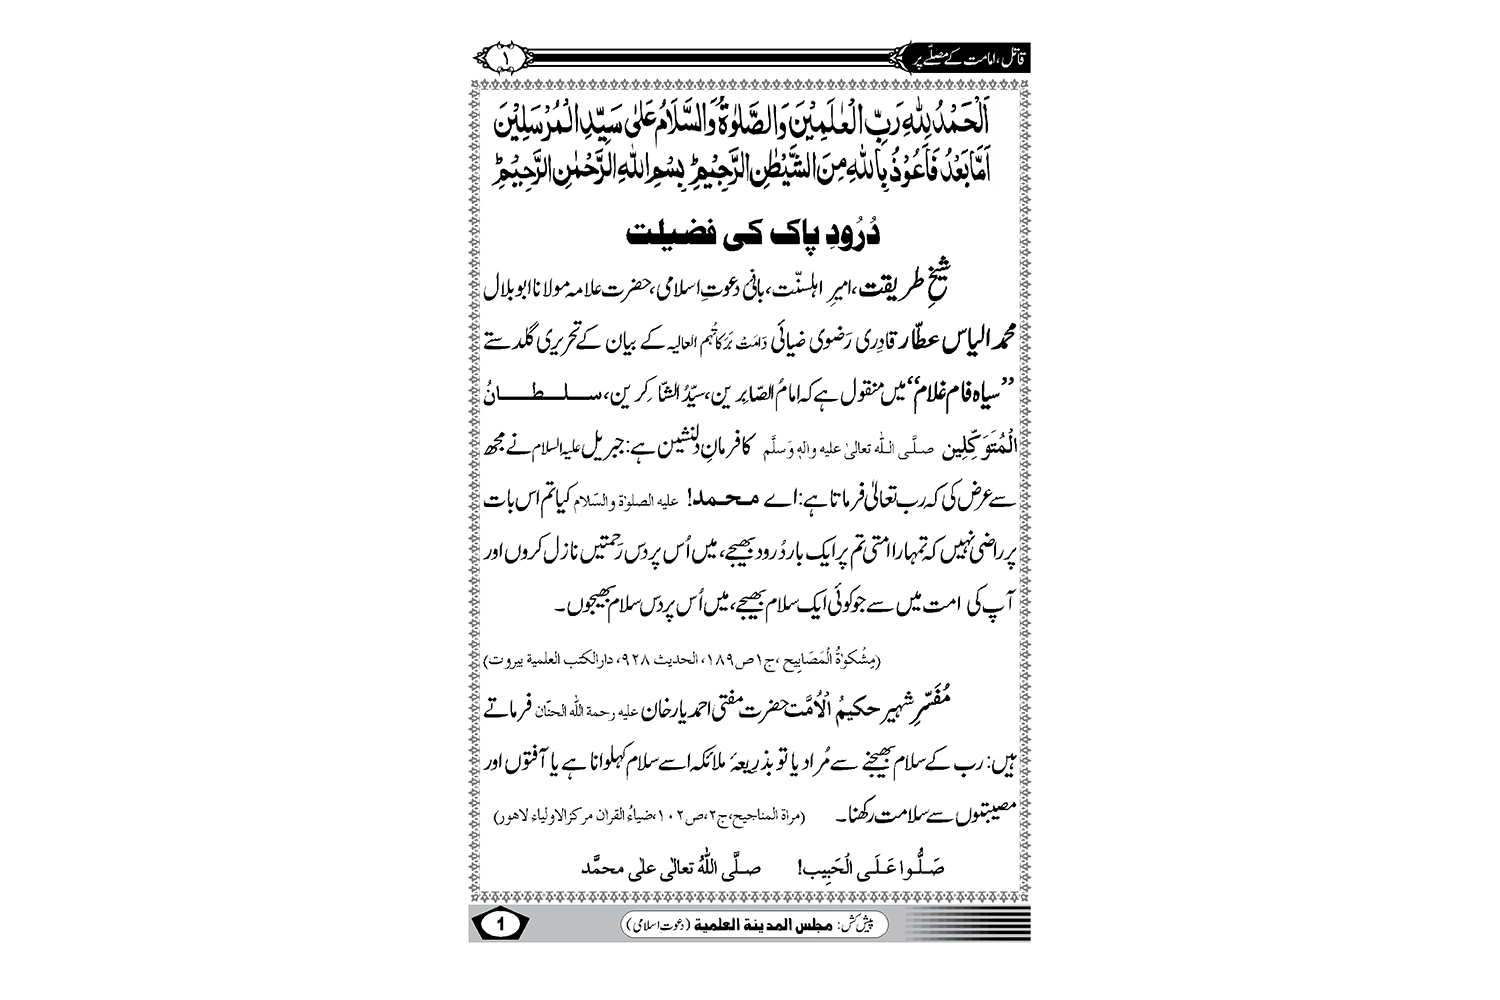 قاتل، امامت کے مصلّے پر
۱
اَلْحَمْدُ لِلّٰهِ رَبِّ الْعٰلَمِیْنَ وَالصَّلٰوۃُ وَالسَّلَامُ عَلٰی سَیِّدِ الْمُرْسَلِیْنَ
اَمَّا بَعْدُ فَاَعُوْذُ بِاللّٰهِ مِنَ الشَّیْطٰنِ الرَّجِیْمِ ؕ بِسْمِ اللّٰهِ الرَّحْمٰنِ الرَّحِیْمِ ؕ
دُرُودِ پاک کی فضیلت
شیخِ طریقت، امیرِ اہلسنّت، بانیٔ دعوتِ اسلامی، حضرت علامہ مولانا ابو بلال
محمد الیاس عطّار قادِری رَضوی ضیائی دَامَتْ بَرَکاتُہم العالیہ کے بیان کے تحریری گلدستے
”سیاہ فام غلام“ میں منقول ہے کہ امامُ الصّابِرین، سیّدُ الشّاکِرین، سلطانُ
الْمُتَوَکِّلِین صلَّی اللہ تعالیٰ علیہ واٰلہٖ وَسلَّم کا فرمانِ دلنشین ہے: جبریل علیہ السلام نے مجھ
سے عرض کی کہ رب تعالیٰ فرماتا ہے: اے محمد! علیہ الصلوٰۃ والسّلام کیا تم اس بات
پر راضی نہیں کہ تمہارا امتی تم پر ایک بار دُرود بھیجے، میں اُس پر دس رَحمتیں نازل کروں اور
آپ کی امت میں سے جو کوئی ایک سلام بھیجے، میں اُس پر دس سلام بھیجوں۔
(مِشْکوٰۃُ الْمَصَابِیح ،ج۱ص۱۸۹، الحدیث ۹۲۸، دارالکتب العلمیۃ بیروت)
مُفَسِّرِ شہیر حکیمُ الْاُمَّت حضرت مفتی احمد یار خان علیہ رحمۃ اللہ الحنّان فرماتے
ہیں: رب کے سلام بھیجنے سے مُراد یا تو بذریعۂ ملائکہ اسے سلام کہلوانا ہے یا آفتوں اور
مصیبتوں سے سلامت رکھنا۔ (مراٰۃ المناجیح،ج۲،ص۱۰۲،ضیاءُ القراٰن مرکزالاولیاء لاھور)
صَلُّوا عَلَی الْحَبِیب! صلَّی اللّٰہُ تعالٰی علٰی محمَّد
پیش کش: مجلس المدینۃ العلمیۃ (دعوت اسلامی)
1